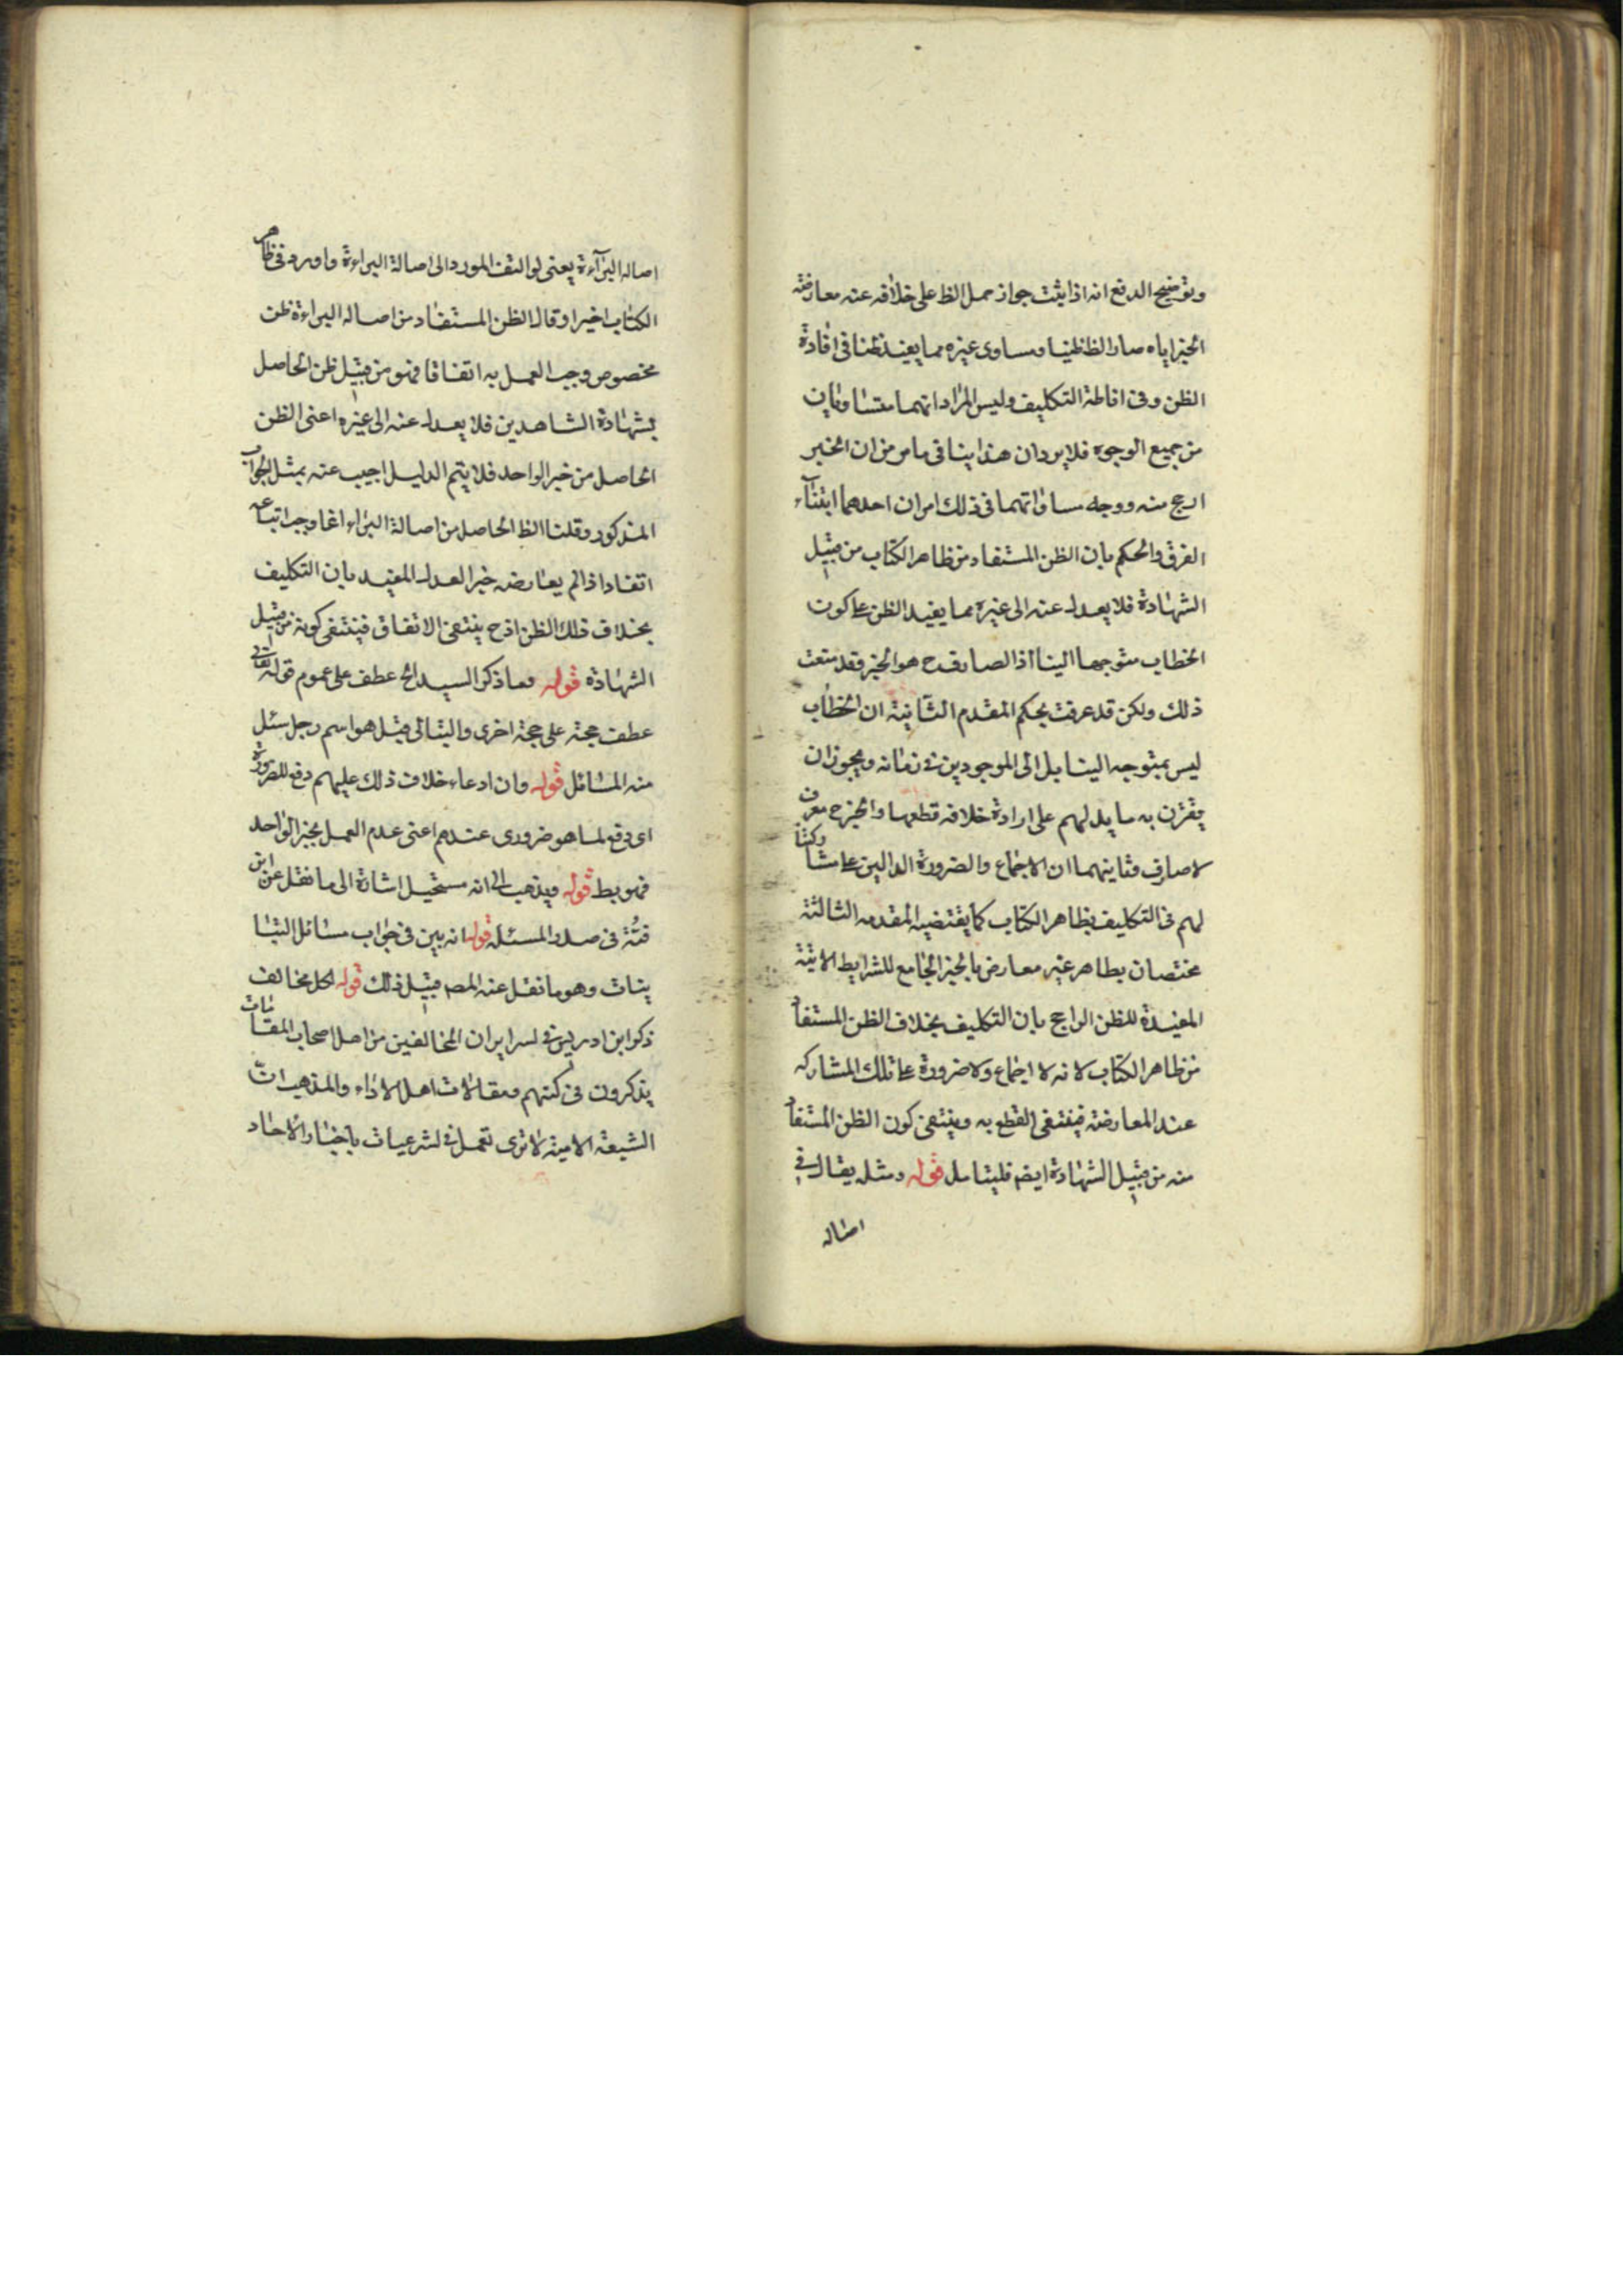 وتوضيح الدفع انه اذا ثبت جواز حمل الظ على خلافه عند معارضة
الخبر اياه صار الظ ظنيا وساوى غيره مما يفيد ظنا فى افادة
الظن وفى اناطة التكليف وليس المراد انهما متساويان
من جميع الوجوه فلا يرد ان هذا ينافى ما مر من ان الخبر
ارجح منه ووجه مساواتهما فى ذلك امران احدهما ابتناء
الفرق والحكم بان الظن المستفاد من ظاهر الكتاب من قبيل
الشهادة فلا يعدل عنه الى غيره مما يفيد الظن على كون
الخطاب متوجها الينا اذ الصارف ح هو الخبر وقد منعت
ذلك ولكن قد عرفت بحكم المقدم الثانية ان الخطاب
ليس بمتوجه الينا بل الى الموجودين فى زمانه ويجوز ان
يقترن به ما يدلهم على ارادة خلافه قطعا والخبر ح معرف
لا صارف وثانيهما ان الاجماع والضرورة الدالين على مشاركتنا
لهم فى التكليف بظاهر الكتاب كما يقتضيه المقدمه الثالثة
مختصان بظاهر غير معارض بالخبر الجامع للشرايط الاتية
المفيدة للظن الراجح بان التكليف بخلاف الظن المستفاد
من ظاهر الكتاب لانه لا اجماع ولا ضرورة على تلك المشاركه
عند المعارضة فينتفى القطع به وينتفى كون الظن المستفاد
منه من قبيل الشهادة ايضا فليتامل قوله ومثله يقال فى
اصاله
اصاله البراءة يعنى لو التفت المورد الى اصالة البراءة واورد فى ظاهر
الكتاب اخيرا وقال الظن المستفاد من اصاله البراءة ظن
مخصوص وجب العمل به اتفاقا فهو من قبيل ظن الحاصل
بشهادة الشاهدين فلا يعدل عنه الى غيره اعنى الظن
الحاصل من خبر الواحد فلا يتم الدليل اجيب عنه بمثل الجواب
المذكور وقلنا الظ الحاصل من اصالة البراءة انما وجب اتباعه
اتفاقا اذا لم يعارضه خبر العدل المفيد بان التكليف
بخلاف ذلك الظن اذ ح ينتفى الاتفاق فينتفى كونه من قبيل
الشهادة قوله وما ذكر السيد الخ عطف على عموم قوله تعالى
عطف حجة على حجة اخرى والتبانى قيل هو اسم رجل سئل
منه المسائل قوله وان ادعاء خلاف ذلك عليهم دفع للضرورة
اى دفع لما هو ضرورى عندهم اعنى عدم العمل بخبر الواحد
فهو بط قوله ويذهب الى انه مستحيل اشارة الى ما نقل عن ابن
قبة فى صدر المسئلة قوله انه بين فى جواب مسائل التبا
نيات وهو ما نقل عنه المصـ قبيل ذلك قوله لكل مخالف
ذكر ابن ادريس فى لسراير ان المخالفين من اصل اصحاب المقالات
يذكرون فى كتبهم ومقالات اهل الاراء والمذهب ان
الشيعة الامية لا ترى تعمل فى لشرعيات باخبار الاحاد